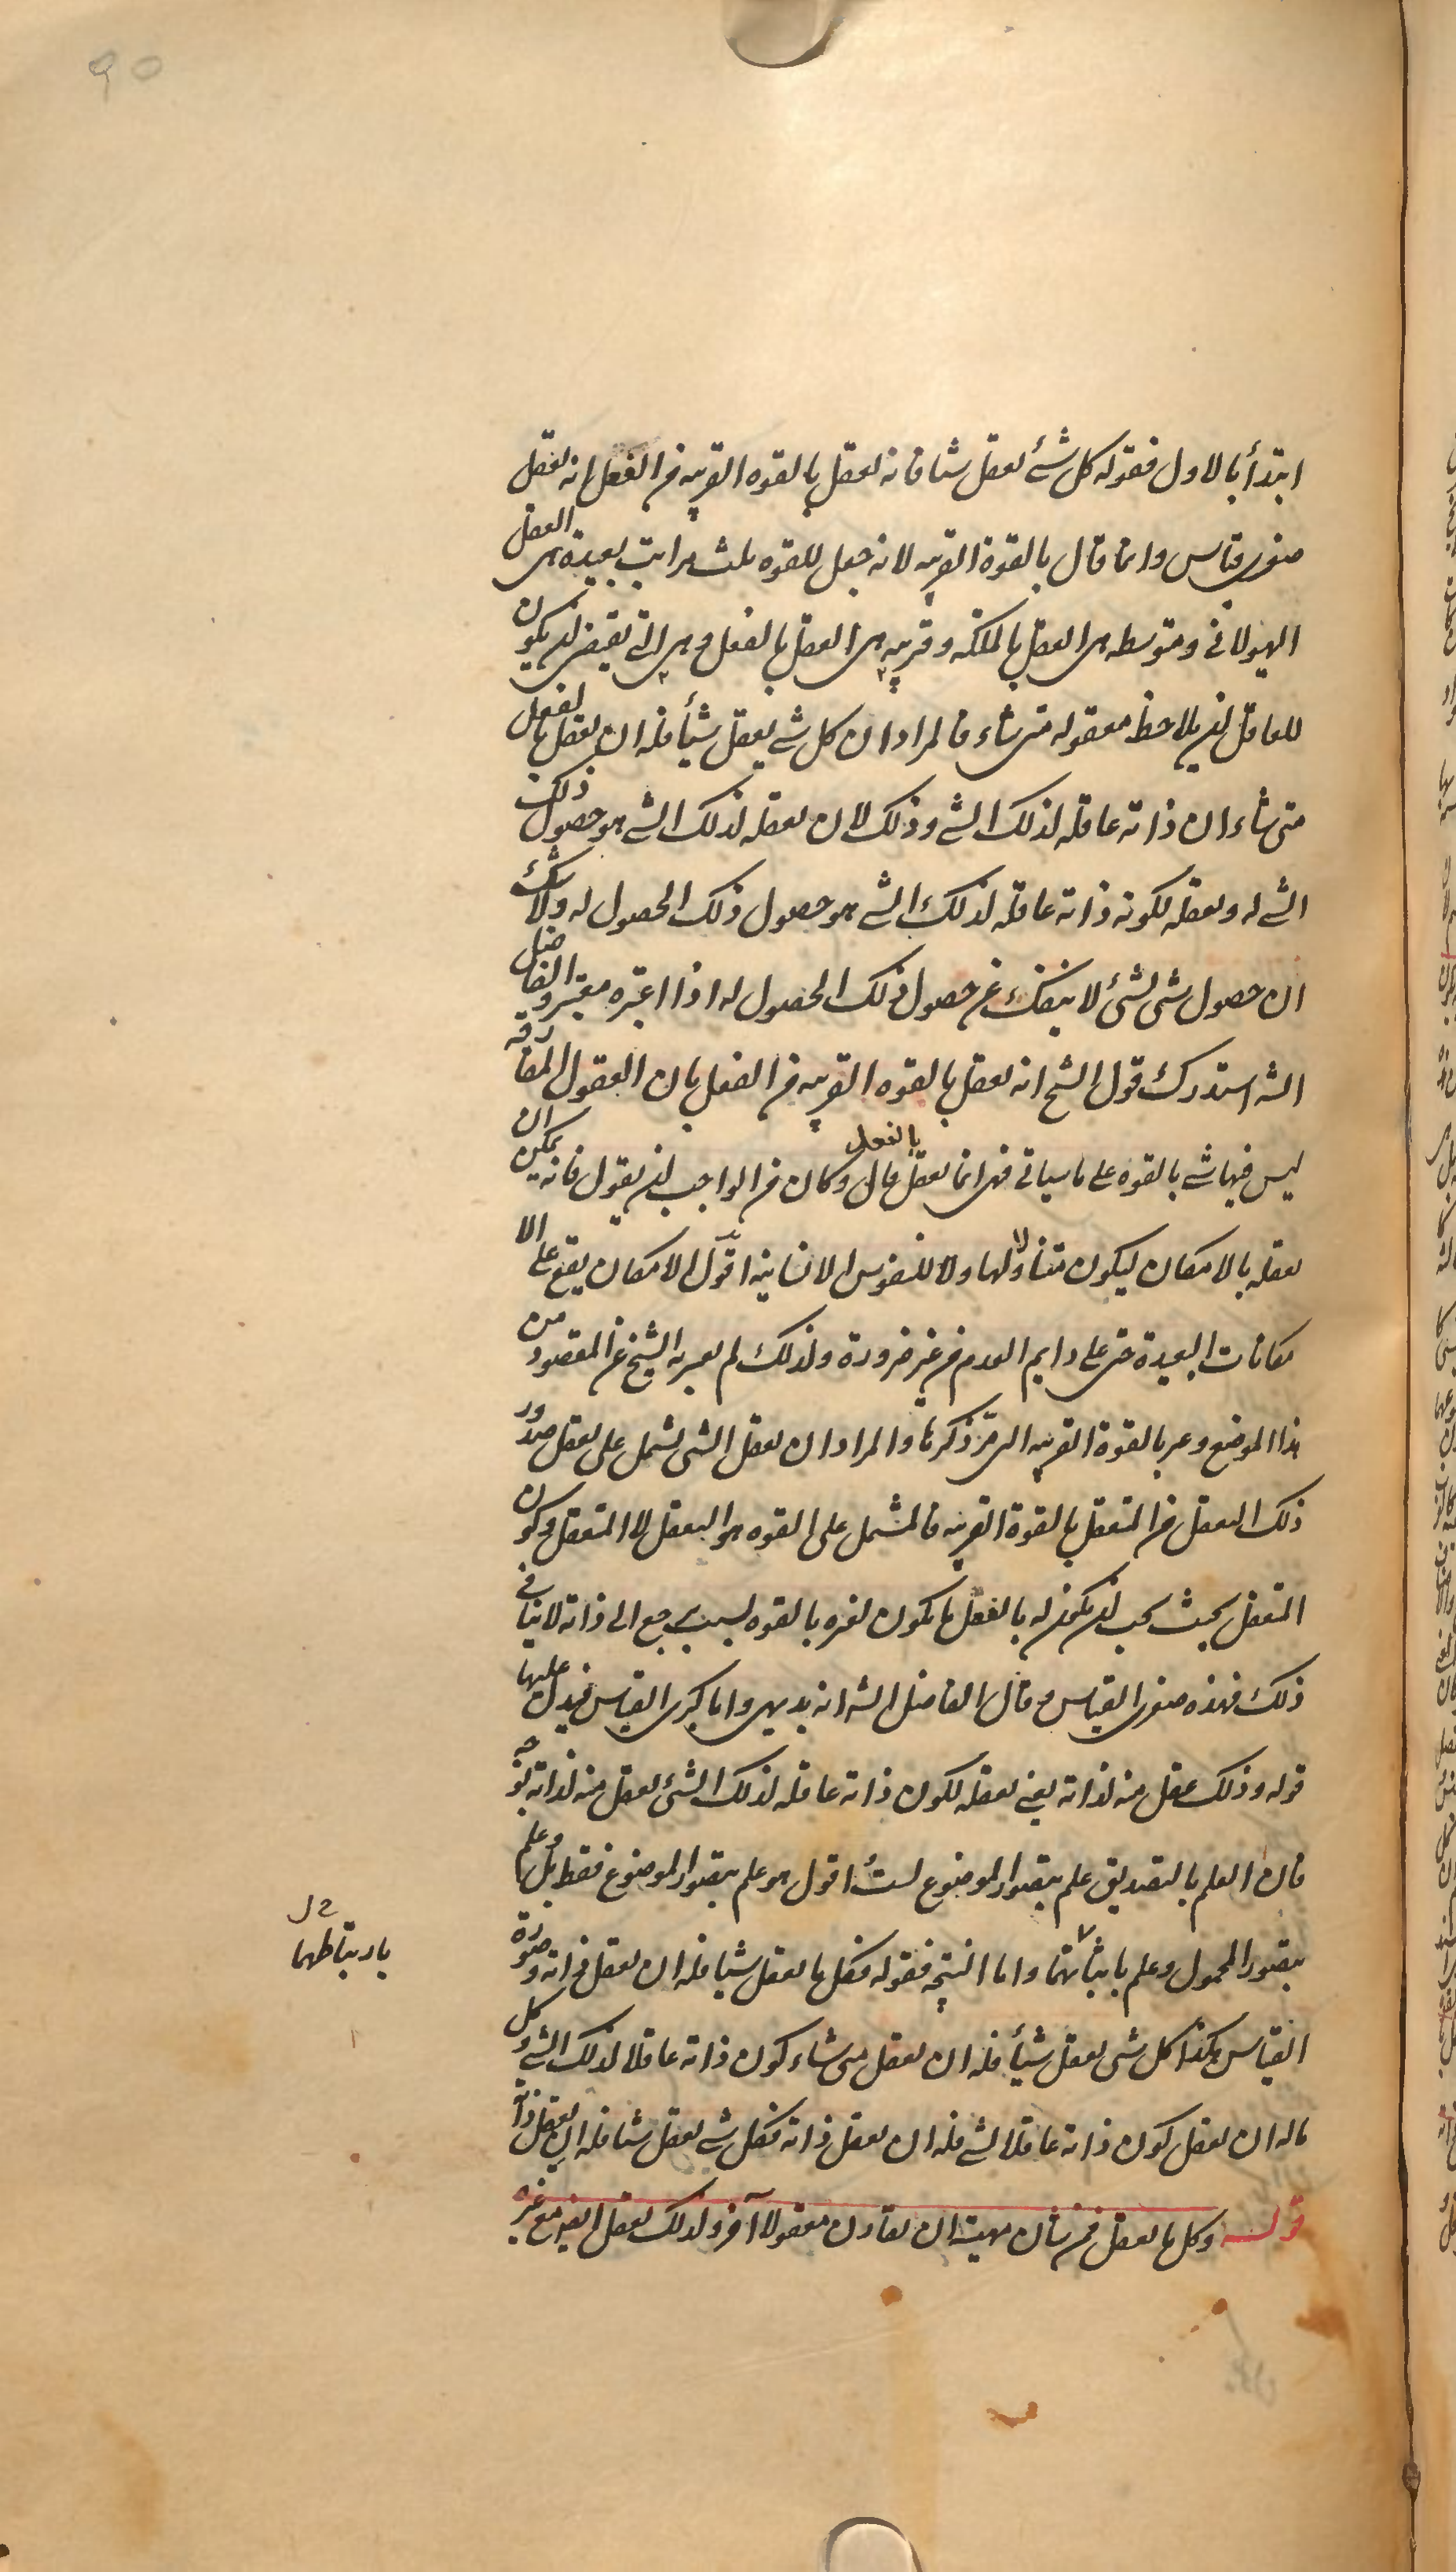 90
ابتدأ بالاول فقوله كل شئ يعقل شيئا فانه يعقل بالقوه القريبه من الفعل انه يعقل
صغرى قياس وانما قال بالقوة القريبه لانه جعل للقوه ثلث مراتب بعيدة هى العقل
الهيولانى ومتوسطه هى العقل بالملكة وقريبه هى العقل بالفعل وهى التى يقتضى ان يكون
للعاقل ان يلاحظ معقوله متى شاء فالمراد ان كل شئ يعقل شيئأ فله ان يعقل بالفعل
متى شاء ان ذاته عاقله لذلك الشئ وذلك لان تعقله لذلك الشئ هو حصول ذلك
الشئ له وتعقله لكونه ذاته عاقله لذلك الشئ هو حصول ذلك الحصول له ولا شك
ان حصول شئ لشئ لا ينفك عن حصول ذلك الحصول له اذا اعتبره معتبر والفاضل
الشه استدرك قول الشيخ انه يعقل بالقوه القريبه من الفعل بان العقول المفارقة
ليس فيها شئ بالقوه على ما سياتى فهى انما تعقل بالفعل قال وكان من الواجب ان يقول فانه يمكن ان
يعقله بالامكان ليكون متناولا لها ولا للنفوس الانسانية اقول الامكان يقع على الا
مكانات البعيدة حتى على دايم العدم من غير ضرورة ولذلك لم يعبر به الشيخ عن المقصود من
هذا الموضع وعبر بالقوة القريبه التى مرّ ذكرها والمراد ان تعقل الشئ يشمل على تعقل صدور
ذلك التعقل من المتعقل بالقوة القريبه فالمشمل على القوه هو التعقل لا المتعقل وكون
المتعقل بحيث يجب ان يكون له بالفعل ما يكون لغيره بالقوه لسبب يرجع الى ذاته لا ينافى
ذلك فهذه صغرى القياس وقال الفاضل الشه انه بديهى واما كبرى القياس فيدل عليها
قوله وذلك عقل منه لذاته يعنى تعقله لكون ذاته عاقله لذلك الشئ تعقل منه لذاته بوجه
فان العلم بالتصديق علم بتصور الموضوع لست اقول هو علم بتصور الموضوع فقط بل وعلم
بتصور المحمول وعلم باثباتهما واما النتيجه فقوله فكل ما يعقل شيئا فله ان يعقل ذاته وصورة
القياس هكذا كل شئ يعقل شيئأ فله ان يعقل متى شاء كون ذاته عاقلا لذلك الشئ وكل
ماله ان يعقل كون ذاته عاقلا لشئ فله ان يعقل ذاته فكل شئ يعقل شيئا فله ان يعقل ذاته
قوله وكل ما يعقل فمن شان مهيته ان تقارن معقولا آخر ولذلك يعقل ايضا مع غيره
بارتباطهما